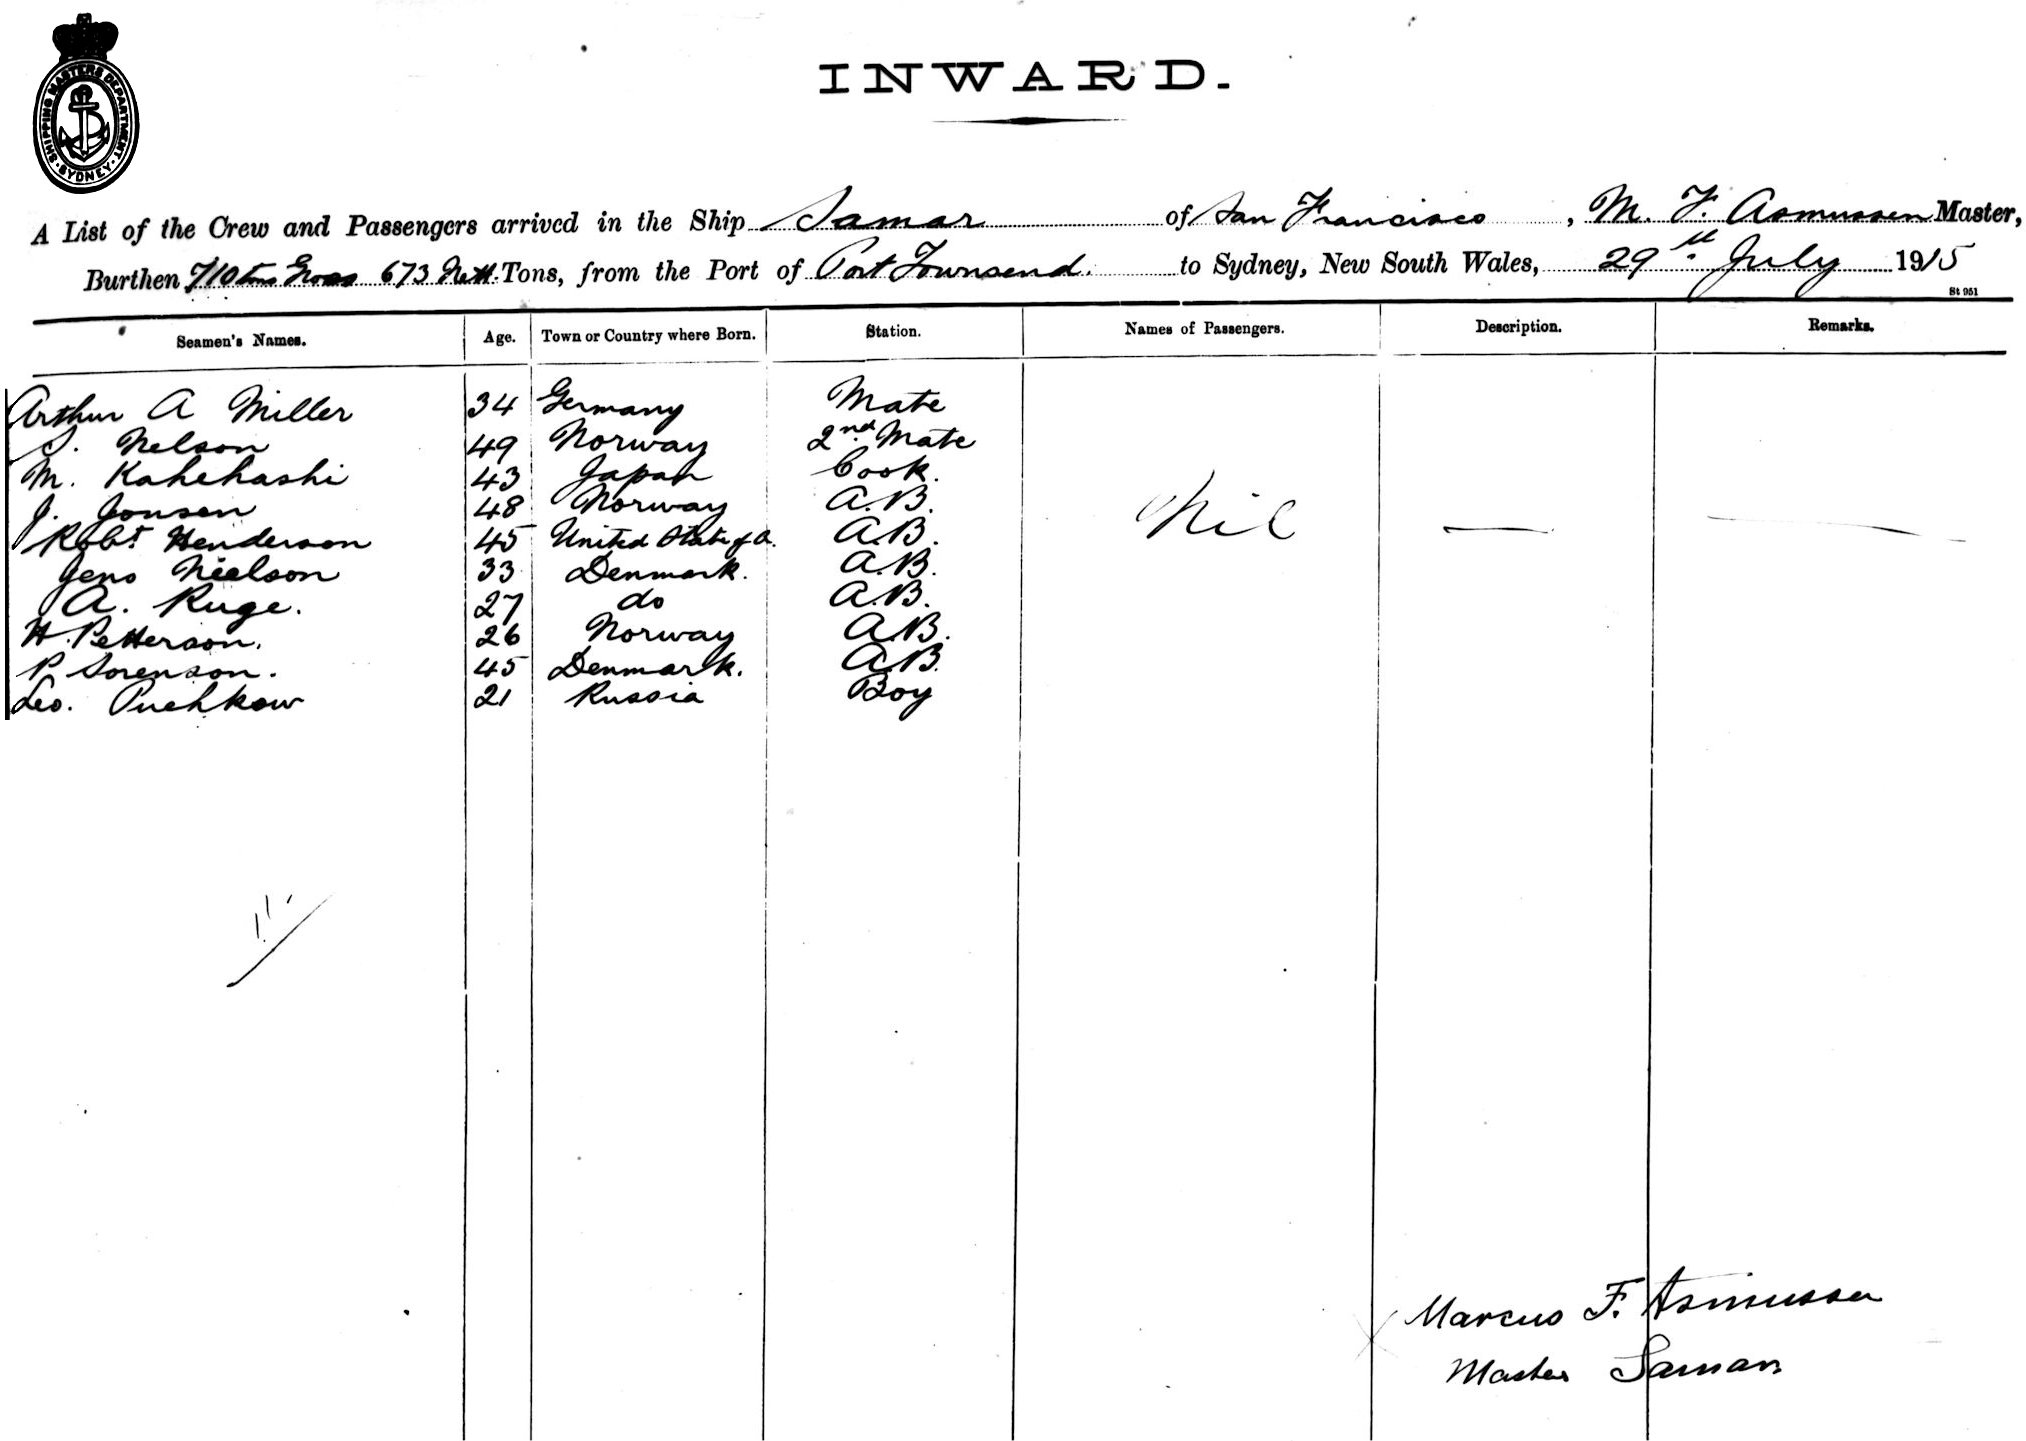 SHIPPING MASTERS DEPARTMENT · SYDNEY ·
INWARD.
A List of the Crew and Passengers arrived in the Ship Samar of San Francisco, M. F. Asmussen Master,
Burthen 710 tons Gross 673 Nett. Tons, from the Port of Port Townsend. to Sydney, New South Wales, 29th July 1915
St 951
Seamen's Names. Age. Town or Country where Born. Station. Names of Passengers. Description. Remarks.
Arthur A Miller 34 Germany Mate
S. Nelson 49 Norway 2nd Mate
M. Kahehashi 43 Japan Cook.
J. Jonsen 48 Norway A.B.
Robt. Henderson 45 United State of A. A.B. Nil — —
Jens Nielson 33 Denmark. A.B.
A. Ruge. 27 do A.B.
H. Petterson. 26 Norway A.B.
P Sorenson. 45 Denmark. A.B.
Leo. Puchkow 21 Russia Boy
11
Marcus F. Asmussen
Master Samar